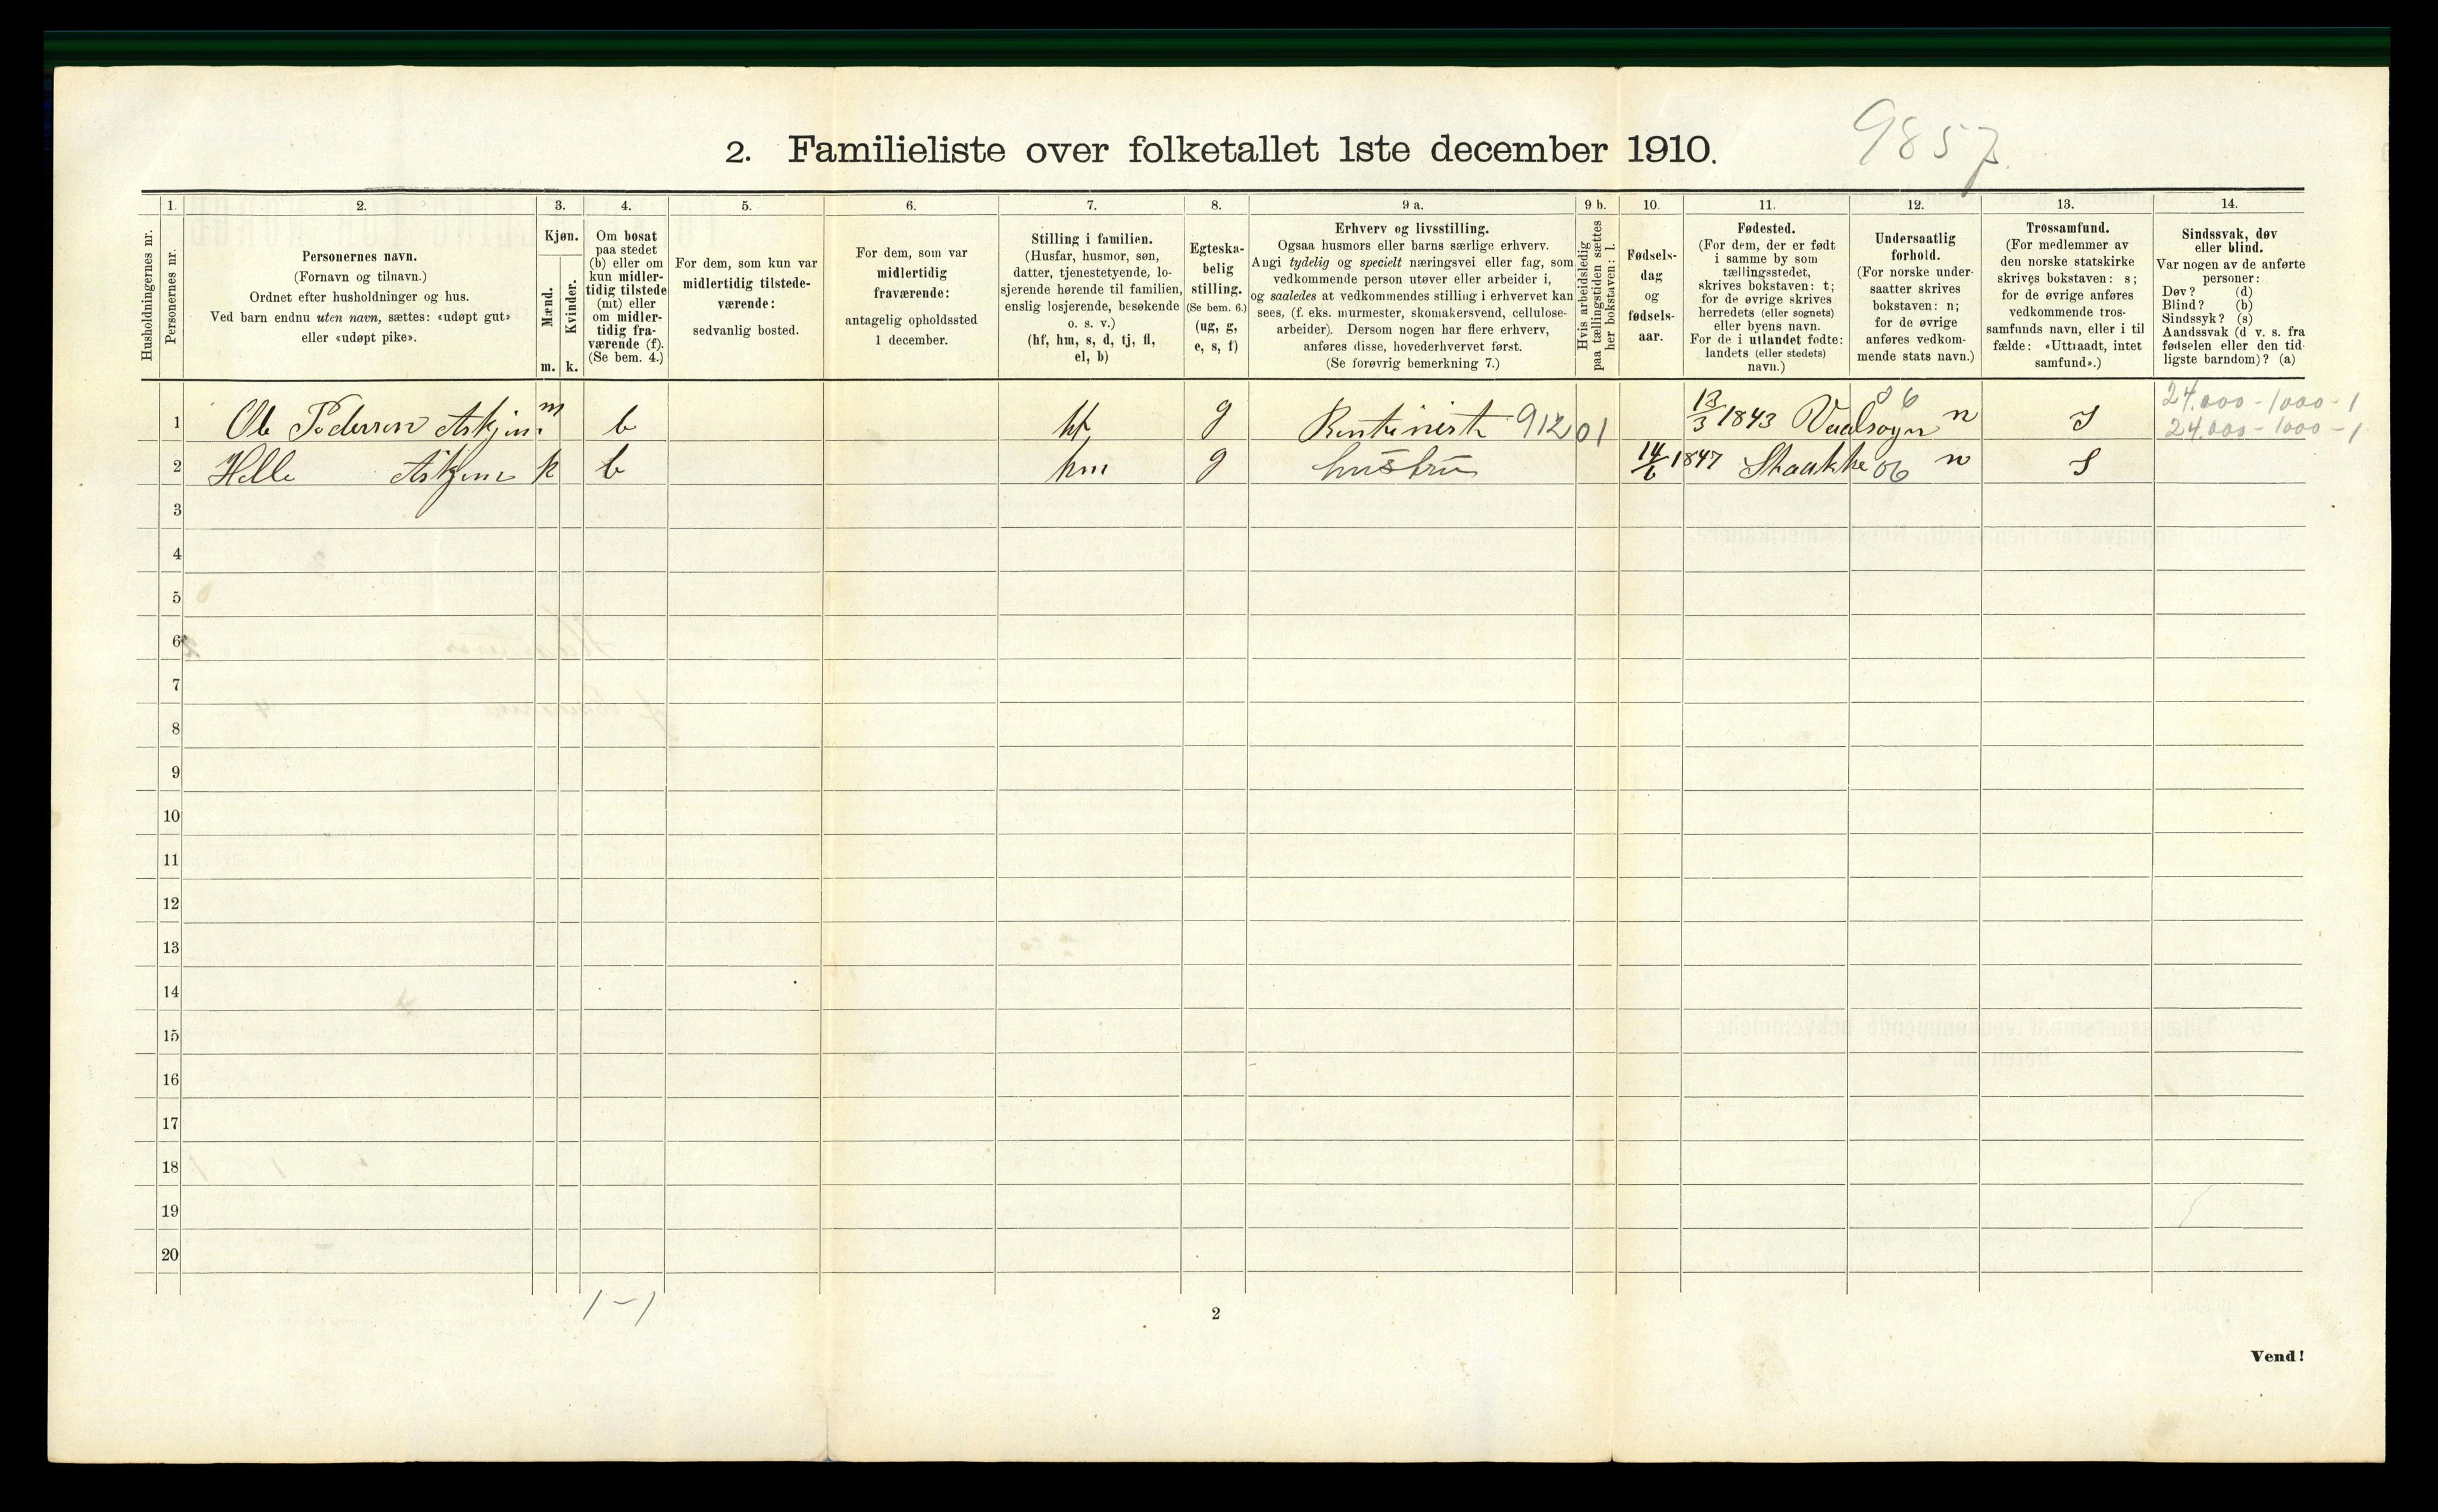 9857
2. Familieliste over folketallet 1ste december 1910.
Husholdningernes nr.
1. Personernes nr.
2. Personernes navn.
(Fornavn og tilnavn.)
Ordnet efter husholdninger og hus.
Ved barn endnu uten navn, sættes: «udøpt gut»
eller «udøpt pike».
3. Kjøn.
Mænd. m.
Kvinder. k.
4. Om bosat
paa stedet
(b) eller om
kun midler-
tidig tilstede
(mt) eller
om midler-
tidig fra-
værende (f).
(Se bem. 4.)
5. For dem, som kun var
midlertidig tilstede-
værende:
sedvanlig bosted.
6. For dem, som var
midlertidig
fraværende:
antagelig opholdssted
1 december.
7. Stilling i familien.
(Husfar, husmor, søn,
datter, tjenestetyende, lo-
sjerende hørende til familien,
enslig losjerende, besøkende
o. s. v.)
(hf, hm, s, d, tj, fl,
el, b)
8. Egteska-
belig
stilling.
(Se bem. 6.)
(ug, g,
e, s, f)
9 a. Erhverv og livsstilling.
Ogsaa husmors eller barns særlige erhverv.
Angi tydelig og specielt næringsvei eller fag, som
vedkommende person utøver eller arbeider i,
og saaledes at vedkommendes stilling i erhvervet kan
sees, (f. eks. murmester, skomakersvend, cellulose-
arbeider). Dersom nogen har flere erhverv,
anføres disse, hovederhvervet først.
(Se forøvrig bemerkning 7.)
9 b. Hvis arbeidsledig
paa tællingstiden sættes
her bokstaven: l.
10. Fødsels-
dag
og
fødsels-
aar.
11. Fødested.
(For dem, der er født
i samme by som
tællingsstedet,
skrives bokstaven: t;
for de øvrige skrives
herredets (eller sognets)
eller byens navn.
For de i utlandet fødte:
landets (eller stedets)
navn.)
12. Undersaatlig
forhold.
(For norske under-
saatter skrives
bokstaven: n;
for de øvrige
anføres vedkom-
mende stats navn.)
13. Trossamfund.
(For medlemmer av
den norske statskirke
skrives bokstaven: s;
for de øvrige anføres
vedkommende tros-
samfunds navn, eller i til-
fælde: «Uttraadt, intet
samfund».)
14. Sindssvak, døv
eller blind.
Var nogen av de anførte
personer:
Døv? (d)
Blind? (b)
Sindssyk? (s)
Aandssvak (d v. s. fra
fødselen eller den tid-
ligste barndom)? (a)
1 Ole Pedersen Askjem. m b hf g 912 01 13/3 1843 06 n s 24.000-1000-1
24.000-1000-1
2 Helle Askjem k b hm g hustru 14/6 1847 06 n s
3
4
5
6
7
8
9
10
11
12
13
14
15
16
17
18
19
20
1-1
2
Vend!